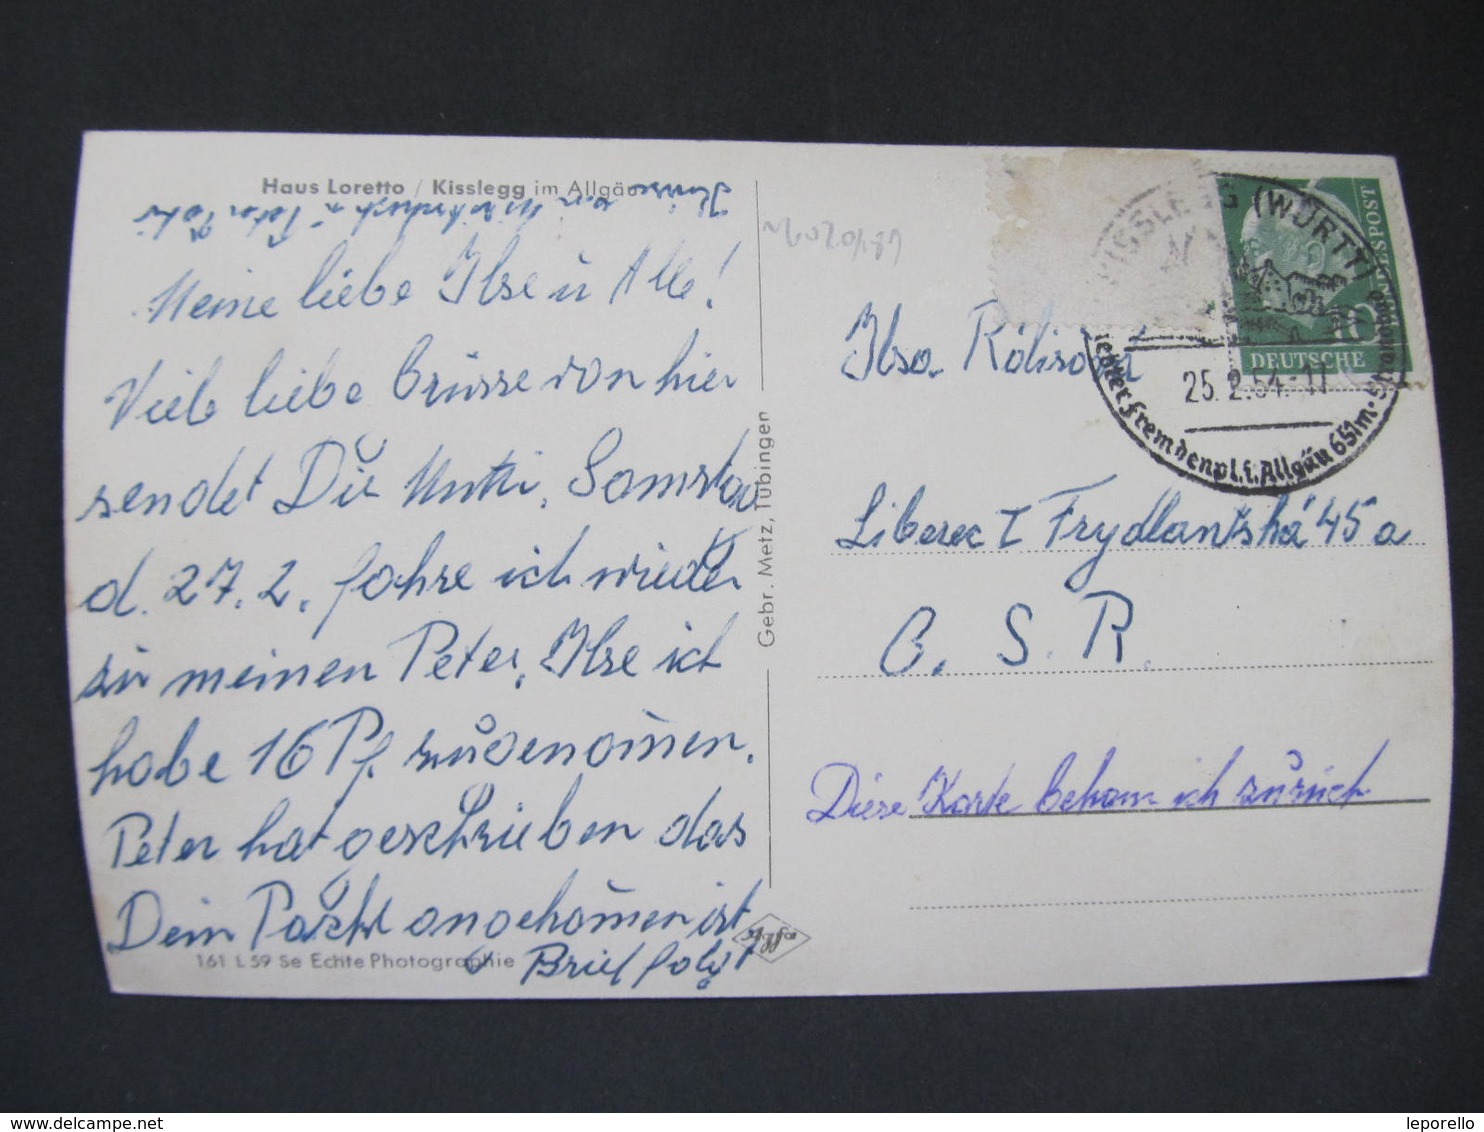 Haus Loretto / Kisslegg im Allgäu
Meine liebe Ilse u Alle!
Viele liebe Grüsse von hier
sendet Dir Mutti, Samstag
d. 27. 2. fahre ich wieder
zu meinen Peter, Ilse ich
habe 16 Pf. zugenomen.
Peter hat geschrieben das
Dein Packt angekomen ist
Brief folgt
161 L 59 Se Echte Photographie
Gebr. Metz, Tübingen
Agfa
KISSLEGG (WÜRTT)
25. 2. 54.-11
Fremdenpl. i. Allgäu 651m
10
DEUTSCHE
SPOST
Ilsa
Liberec I Frydlantská 45 a
C. S. R.
Diese Karte bekam ich zurück
leporello